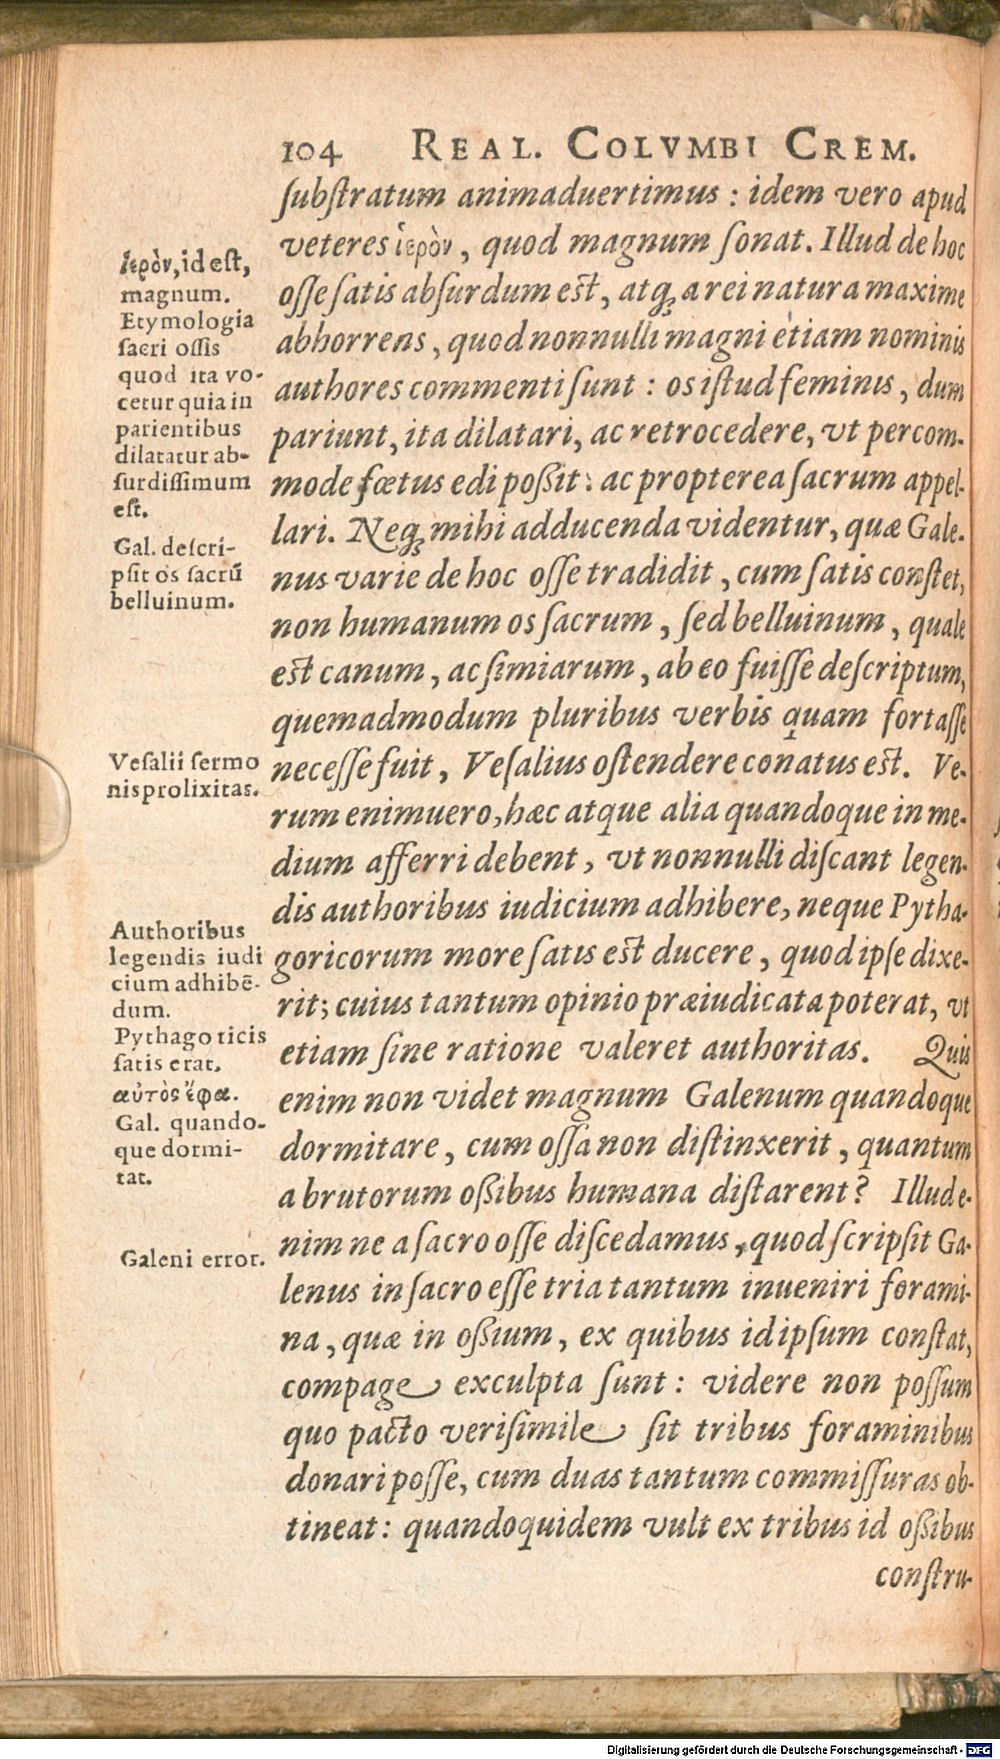 104 REAL. COLVMBI CREM.
substratum animaduertimus : idem vero apud
veteres ἱερὸν, quod magnum sonat. Illud de hoc
osse satis absurdum est, atq; a rei natura maxime
abhorrens, quod nonnulli magni etiam nominis
authores commenti sunt : os istud feminis, dum
pariunt, ita dilatari, ac retrocedere, vt percom-
mode fœtus edi poßit: ac propterea sacrum appel-
lari. Neq; mihi adducenda videntur, quæ Gale-
nus varie de hoc osse tradidit, cum satis constet,
non humanum os sacrum, sed belluinum, quale
est canum, ac simiarum, ab eo fuisse descriptum,
quemadmodum pluribus verbis quam fortasse
necesse fuit, Vesalius ostendere conatus est. Ve-
rum enimuero, hæc atque alia quandoque in me-
dium afferri debent, vt nonnulli discant legen-
dis authoribus iudicium adhibere, neque Pytha-
goricorum more satis est ducere, quod ipse dixe-
rit; cuius tantum opinio præiudicata poterat, vt
etiam sine ratione valeret authoritas. Quis
enim non videt magnum Galenum quandoque
dormitare, cum ossa non distinxerit, quantum
a brutorum oßibus humana distarent? Illud e-
nim ne a sacro osse discedamus, quod scripsit Ga-
lenus in sacro esse tria tantum inueniri forami-
na, quæ in oßium, ex quibus id ipsum constat,
compage exculpta sunt: videre non possum
quo pacto verisimile sit tribus foraminibus
donari posse, cum duas tantum commissuras ob-
tineat: quandoquidem vult ex tribus id oßibus
constru-
ἱερὸν, id est,
magnum.
Etymologia
sacri ossis
quod ita vo-
cetur quia in
parientibus
dilatatur ab-
surdissimum
est.
Gal. descri-
psit os sacrũ
belluinum.
Vesalii sermo
nis prolixitas.
Authoribus
legendis iudi
cium adhibẽ-
dum.
Pythagoricis
satis erat,
αὐτὸς ἔφα.
Gal. quando-
que dormi-
tat.
Galeni error.
Digitalisierung gefördert durch die Deutsche Forschungsgemeinschaft - DFG